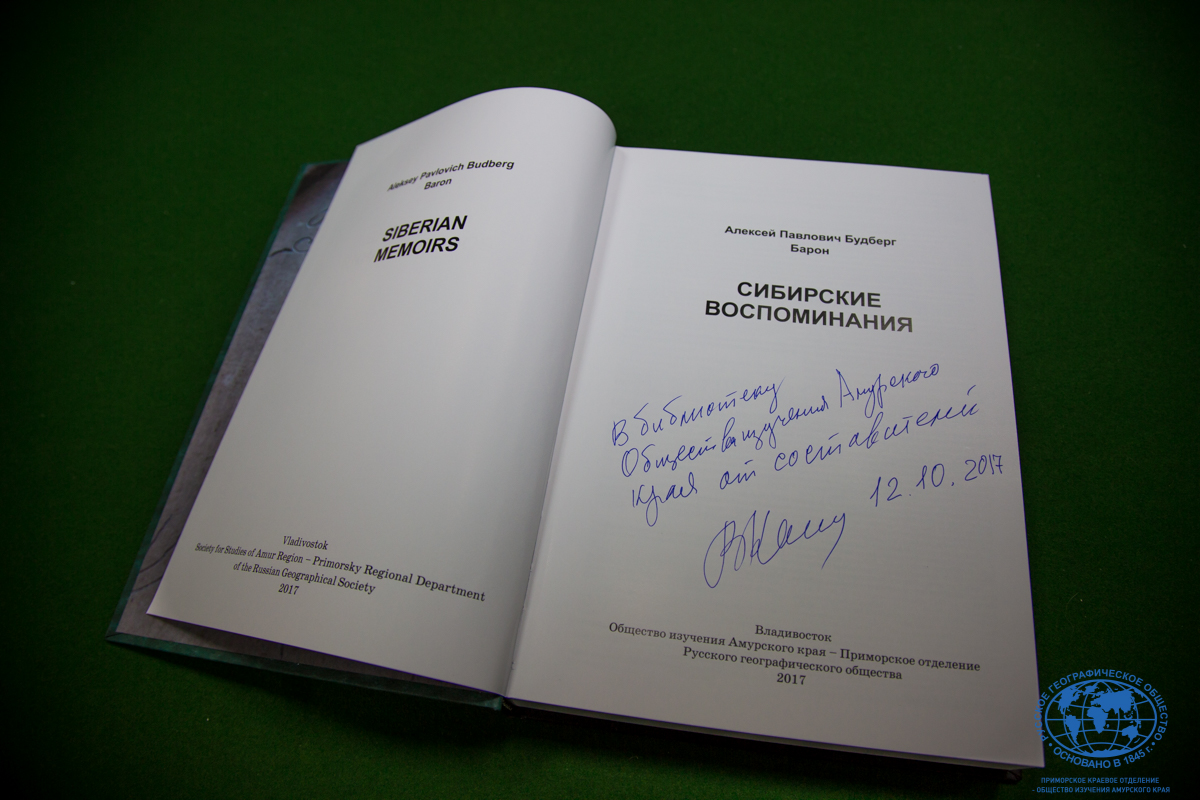 Aleksey Pavlovich Budberg
Baron
SIBERIAN
MEMOIRS
Vladivostok
Society for Studies of Amur Region – Primorsky Regional Department
of the Russian Geographical Society
2017
Алексей Павлович Будберг
Барон
СИБИРСКИЕ
ВОСПОМИНАНИЯ
В библиотеку
Общества изучения Амурского
края от составителей
12.10.2017
Владивосток
Общество изучения Амурского края – Приморское отделение
Русского географического общества
2017
РУССКОЕ ГЕОГРАФИЧЕСКОЕ ОБЩЕСТВО
• ОСНОВАНО В 1845 г. •
ПРИМОРСКОЕ КРАЕВОЕ ОТДЕЛЕНИЕ
- ОБЩЕСТВО ИЗУЧЕНИЯ АМУРСКОГО КРАЯ